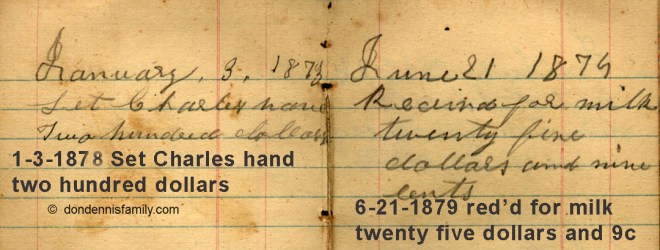 January. 3. 1878
Set Charles hand
Two hundred dollars
1-3-1878 Set Charles hand
two hundred dollars
© dondennisfamily.com
June 21 1879
Recived for milk
twenty five
dollars and nine
cents
6-21-1879 red’d for milk
twenty five dollars and 9c